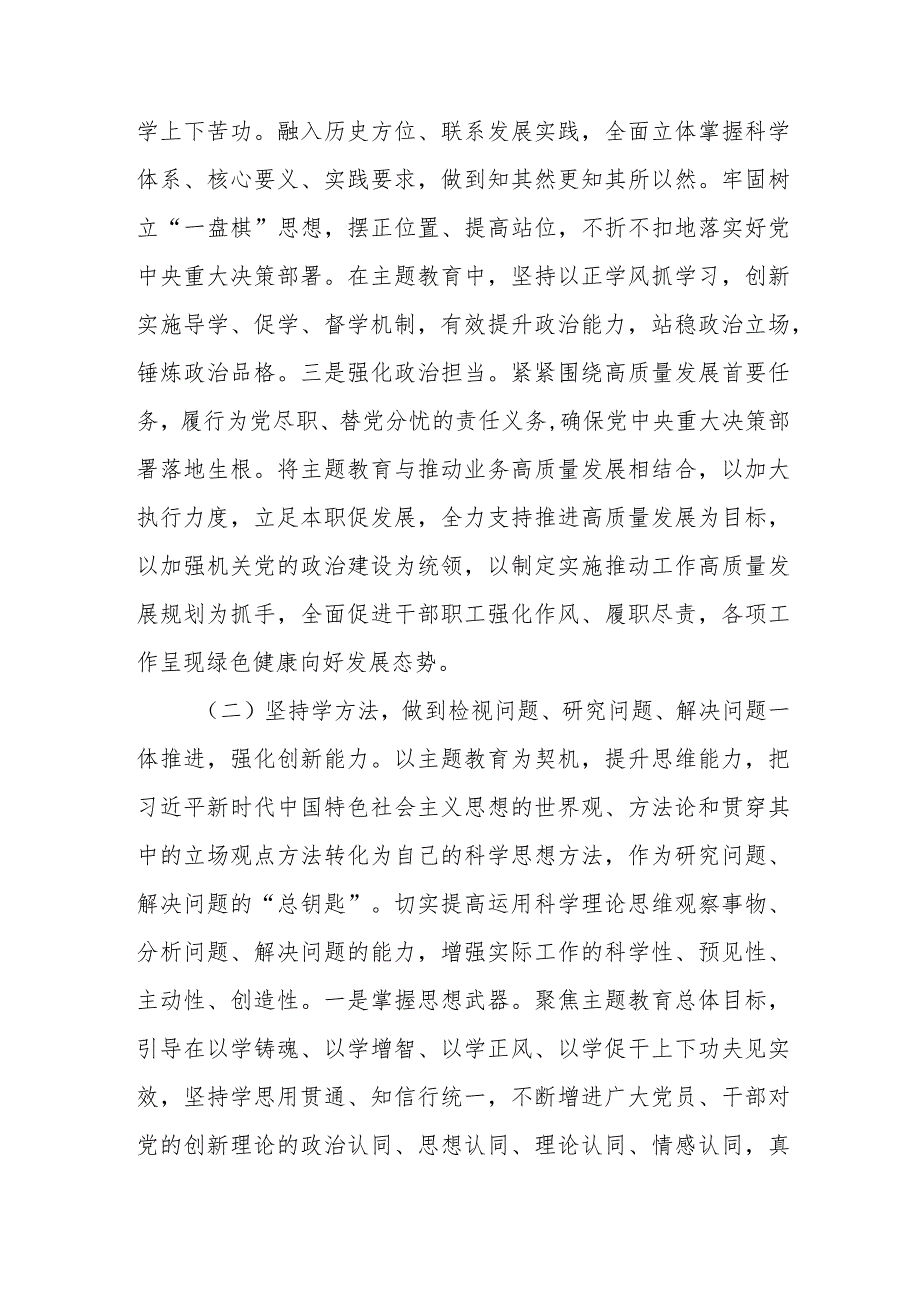 学上下苦功。融入历史方位、联系发展实践，全面立体掌握科学
体系、核心要义、实践要求，做到知其然更知其所以然。牢固树
立“一盘棋”思想，摆正位置、提高站位，不折不扣地落实好党
中央重大决策部署。在主题教育中，坚持以正学风抓学习，创新
实施导学、促学、督学机制，有效提升政治能力，站稳政治立场，
锤炼政治品格。三是强化政治担当。紧紧围绕高质量发展首要任
务，履行为党尽职、替党分忧的责任义务,确保党中央重大决策部
署落地生根。将主题教育与推动业务高质量发展相结合，以加大
执行力度，立足本职促发展，全力支持推进高质量发展为目标，
以加强机关党的政治建设为统领，以制定实施推动工作高质量发
展规划为抓手，全面促进干部职工强化作风、履职尽责，各项工
作呈现绿色健康向好发展态势。
（二）坚持学方法，做到检视问题、研究问题、解决问题一
体推进，强化创新能力。以主题教育为契机，提升思维能力，把
习近平新时代中国特色社会主义思想的世界观、方法论和贯穿其
中的立场观点方法转化为自己的科学思想方法，作为研究问题、
解决问题的“总钥匙”。切实提高运用科学理论思维观察事物、
分析问题、解决问题的能力，增强实际工作的科学性、预见性、
主动性、创造性。一是掌握思想武器。聚焦主题教育总体目标，
引导在以学铸魂、以学增智、以学正风、以学促干上下功夫见实
效，坚持学思用贯通、知信行统一，不断增进广大党员、干部对
党的创新理论的政治认同、思想认同、理论认同、情感认同，真